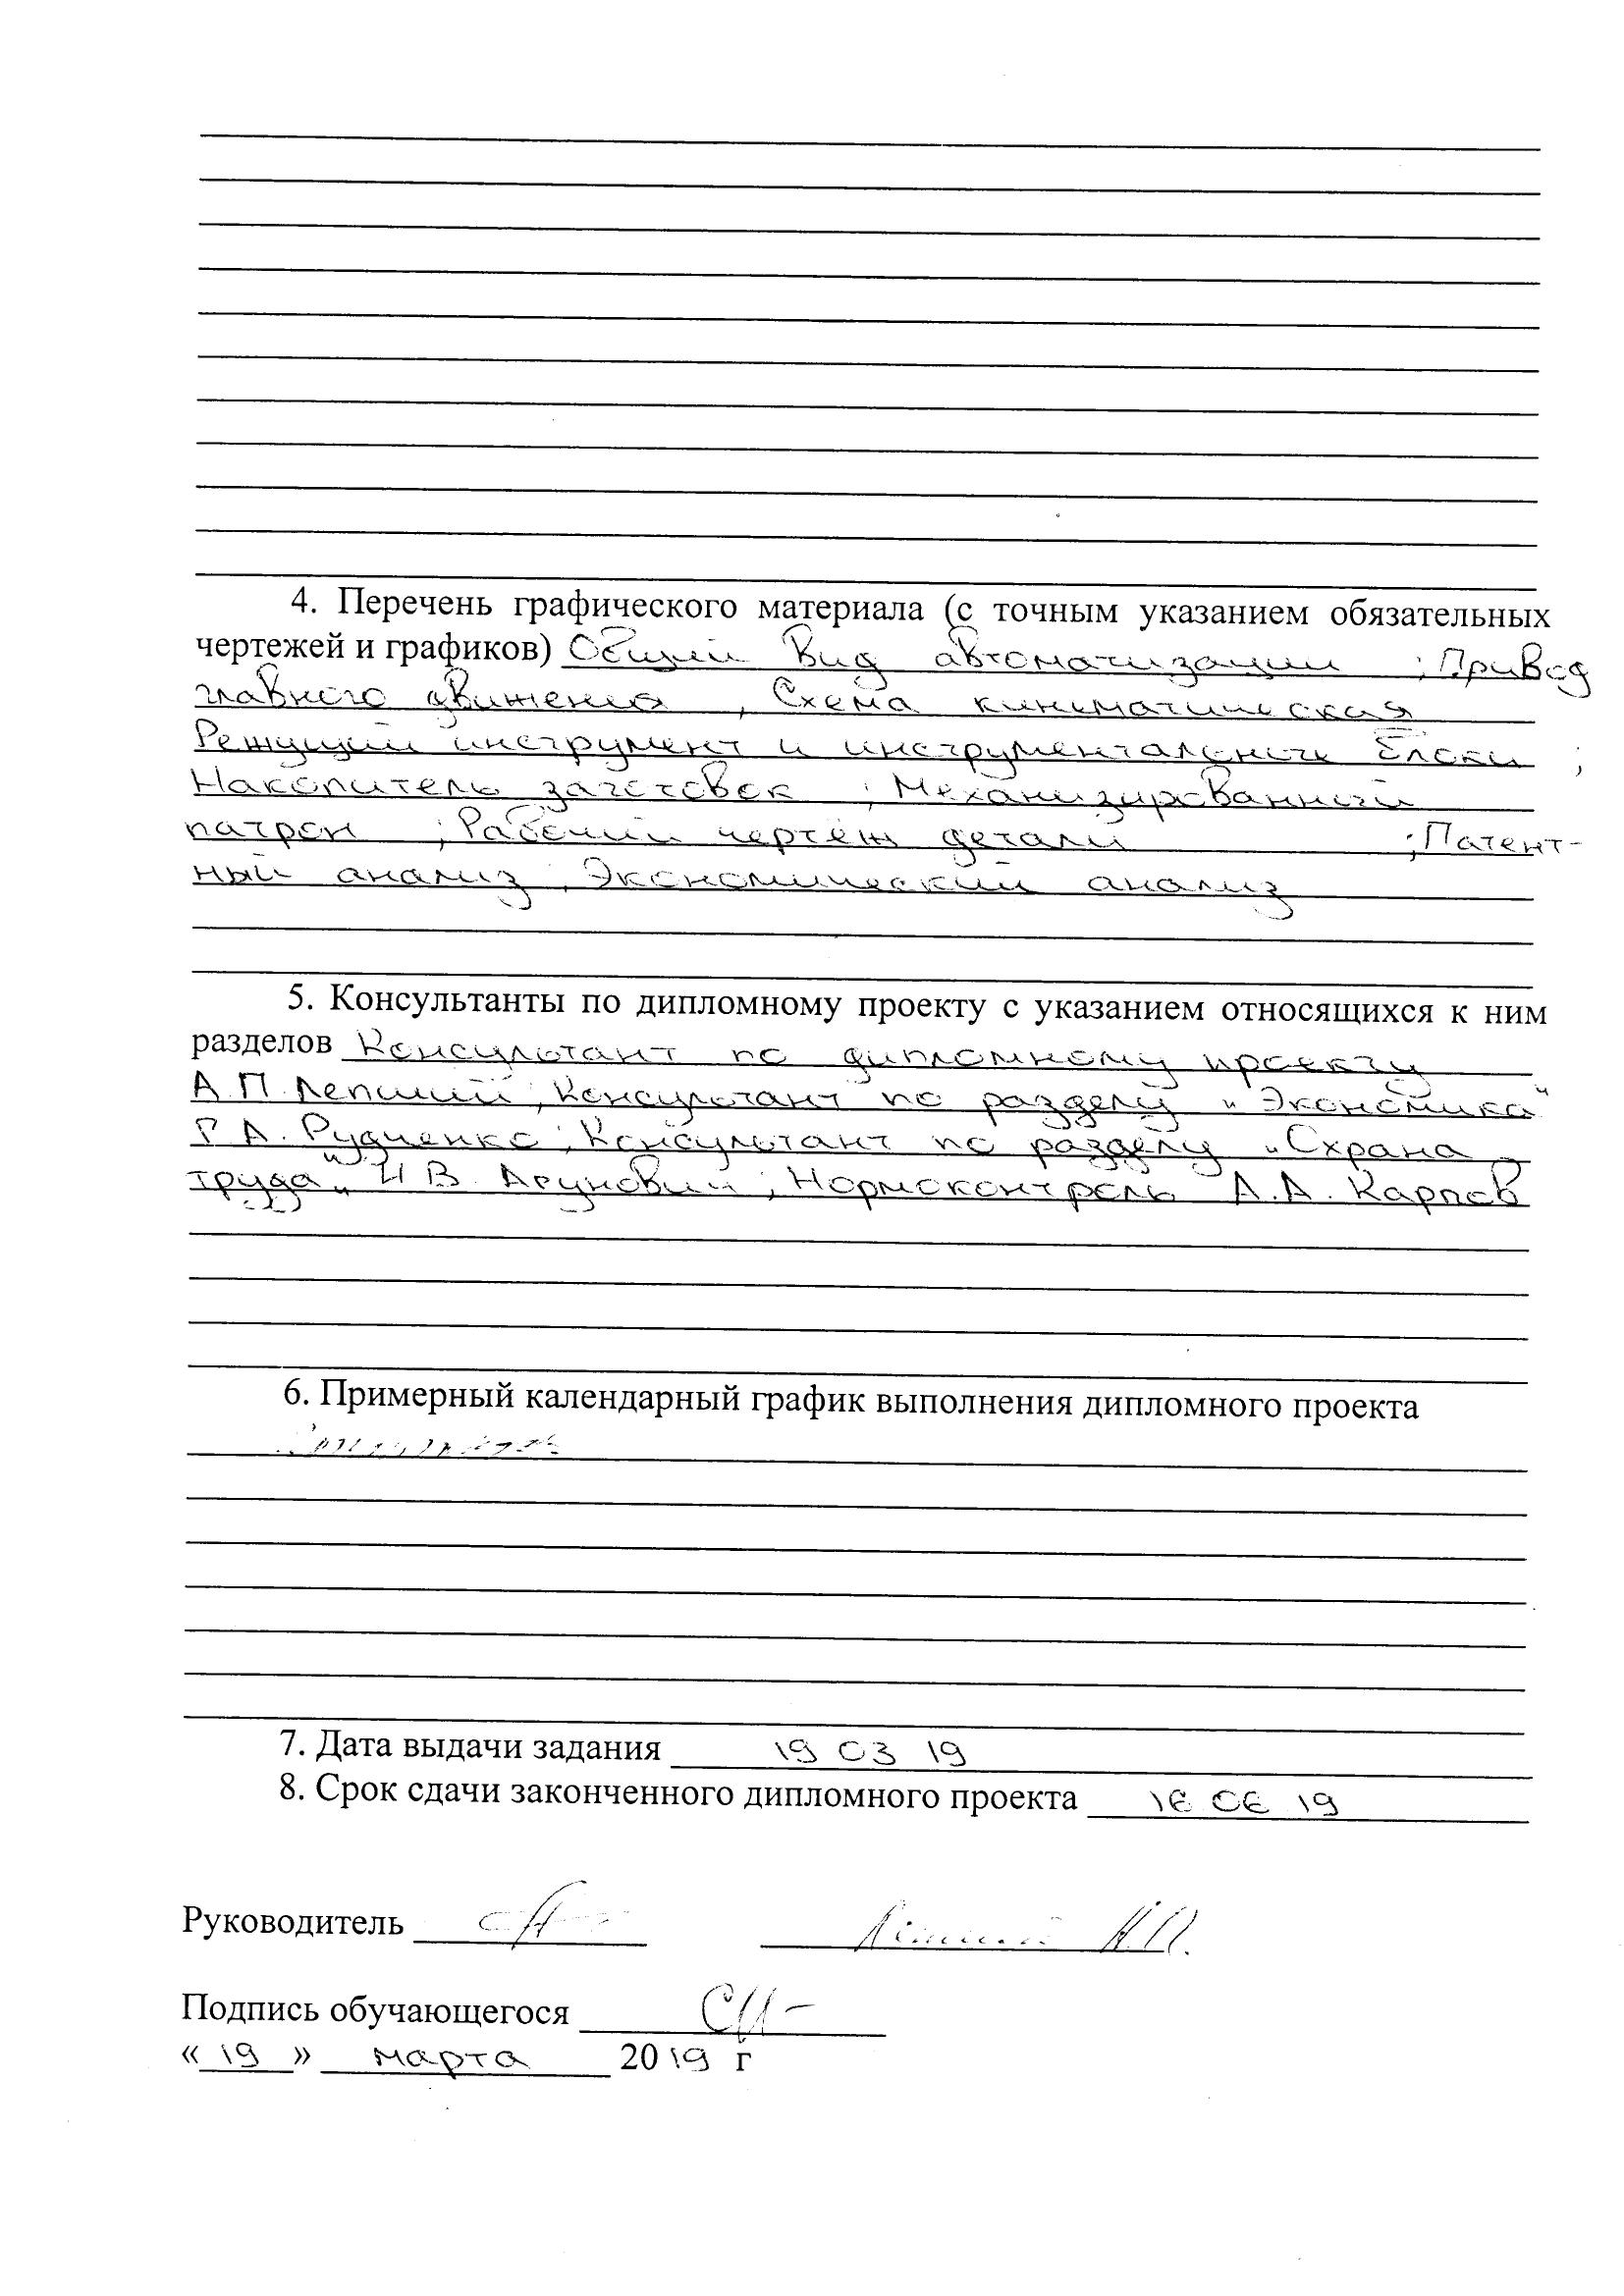 4. Перечень графического материала (с точным указанием обязательных
чертежей и графиков) Общий вид автоматизации ; Привод
главного движения , Схема кинематическая
Режущий инструмент и инструментальные блоки ;
Накопитель заготовок ; Механизированный
патрон ; Рабочий чертёж детали ; Патент-
ный анализ , Экономический анализ
5. Консультанты по дипломному проекту с указанием относящихся к ним
разделов Консультант по дипломному проекту
А.П. Лепший ; Консультант по разделу "Экономика"
Г А. Рудченко ; Консультант по разделу "Охрана
труда" Н В. ; Нормоконтроль А.А. Карпов
6. Примерный календарный график выполнения дипломного проекта
7. Дата выдачи задания 19 03 19
8. Срок сдачи законченного дипломного проекта 16 06 19
Руководитель Лепший А.П.
Подпись обучающегося
« 19 » марта 2019 г